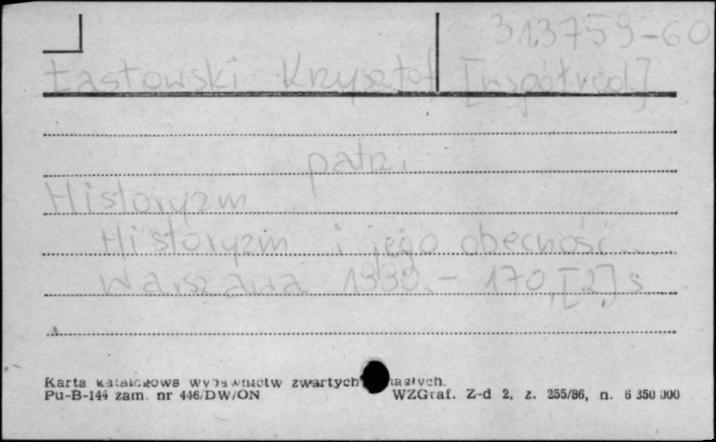 313759-60
Łastowski Krzysztof [współred]
patrz.
Historyzm
Historyzm i jego obecność...
Warszawa 1990. - 170, [2] s.
Karta katalogowa wydawnictw zwartych
Pu-B-144 zam. nr 446/DW/ON WZGraf. Z-d 2, z. 255/86, n. 6 350 000